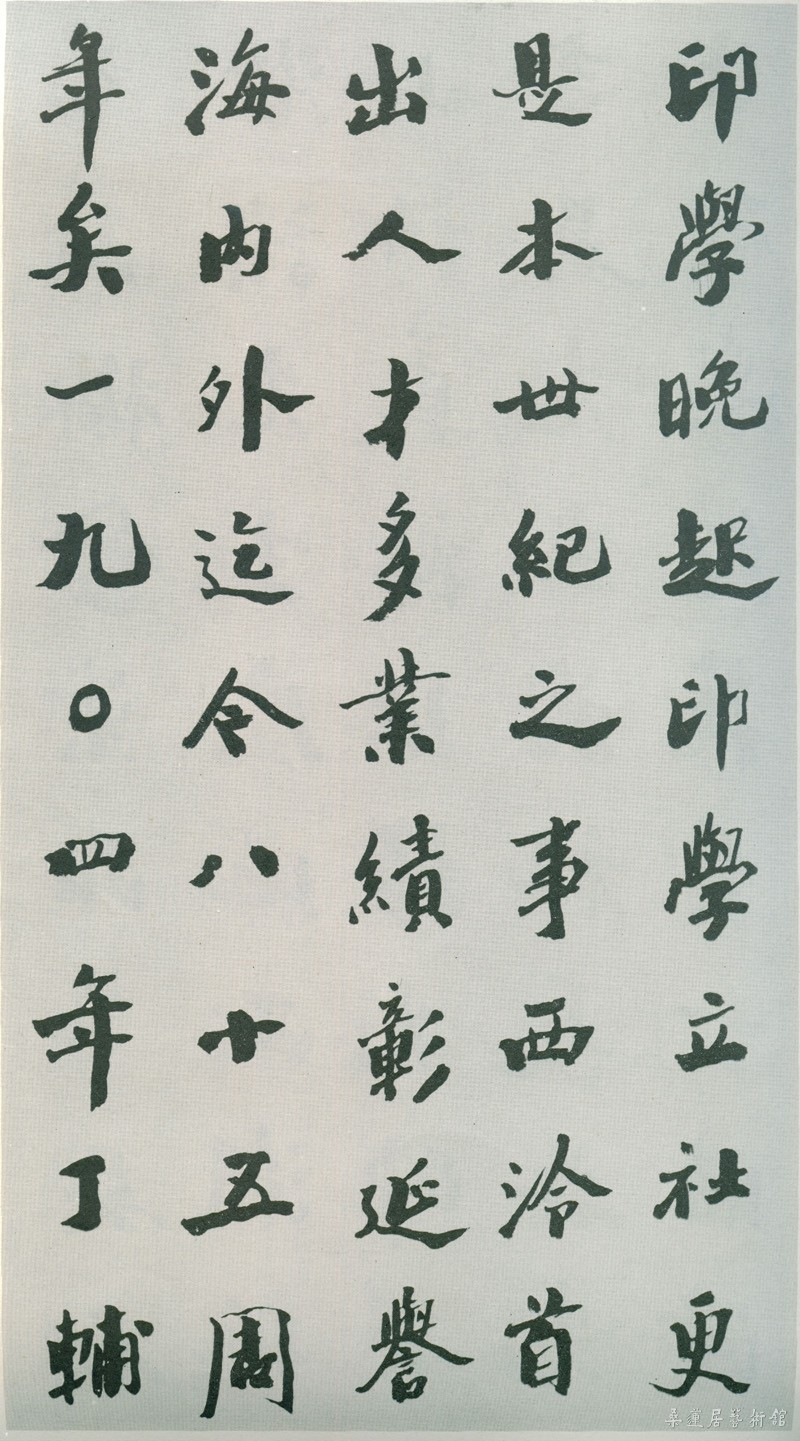 印學晚起印學立社更
是本世紀之事西泠首
出人才多業績彰延譽
海内外迄今八十五周
年矣一九〇四年丁輔
桑蓮居藝術館